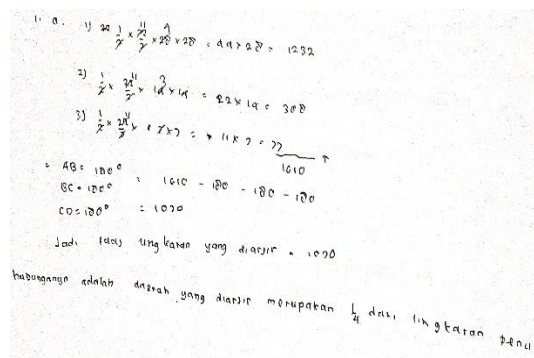 1. a. 1) 1/2 x 22/7 x 28 x 28 = 44 x 28 = 1232
2) 1/2 x 22/7 x 14 x 14 = 22 x 14 = 308
3) 1/2 x 22/7 x 7 x 7 = 11 x 7 = 77
1610
AB = 180°
BC = 180° = 1610 - 180 - 180 - 180
CD = 180° = 1070
Jadi luas lingkaran yang diarsir = 1070
hubungannya adalah daerah yang diarsir merupakan 1/4 dari lingkaran